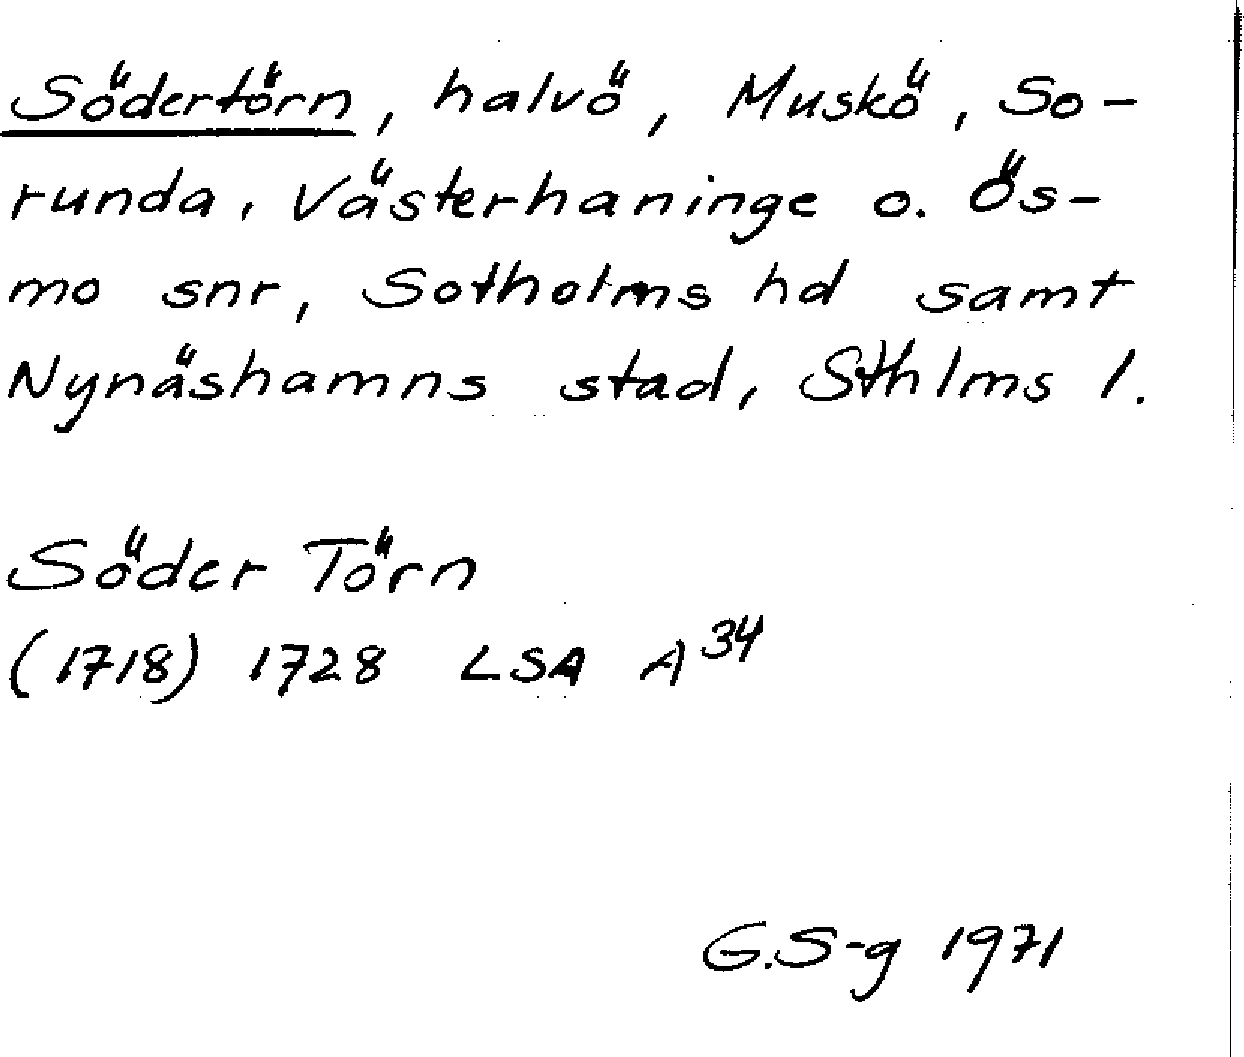 Södertörn, halvö, Muskö, So-
runda, Västerhaninge o. Ös-
mo snr, Sotholms hd samt
Nynäshamns stad, Sthlms l.
Söder Törn
(1718) 1728 LSA A³⁴
G.S-g 1971